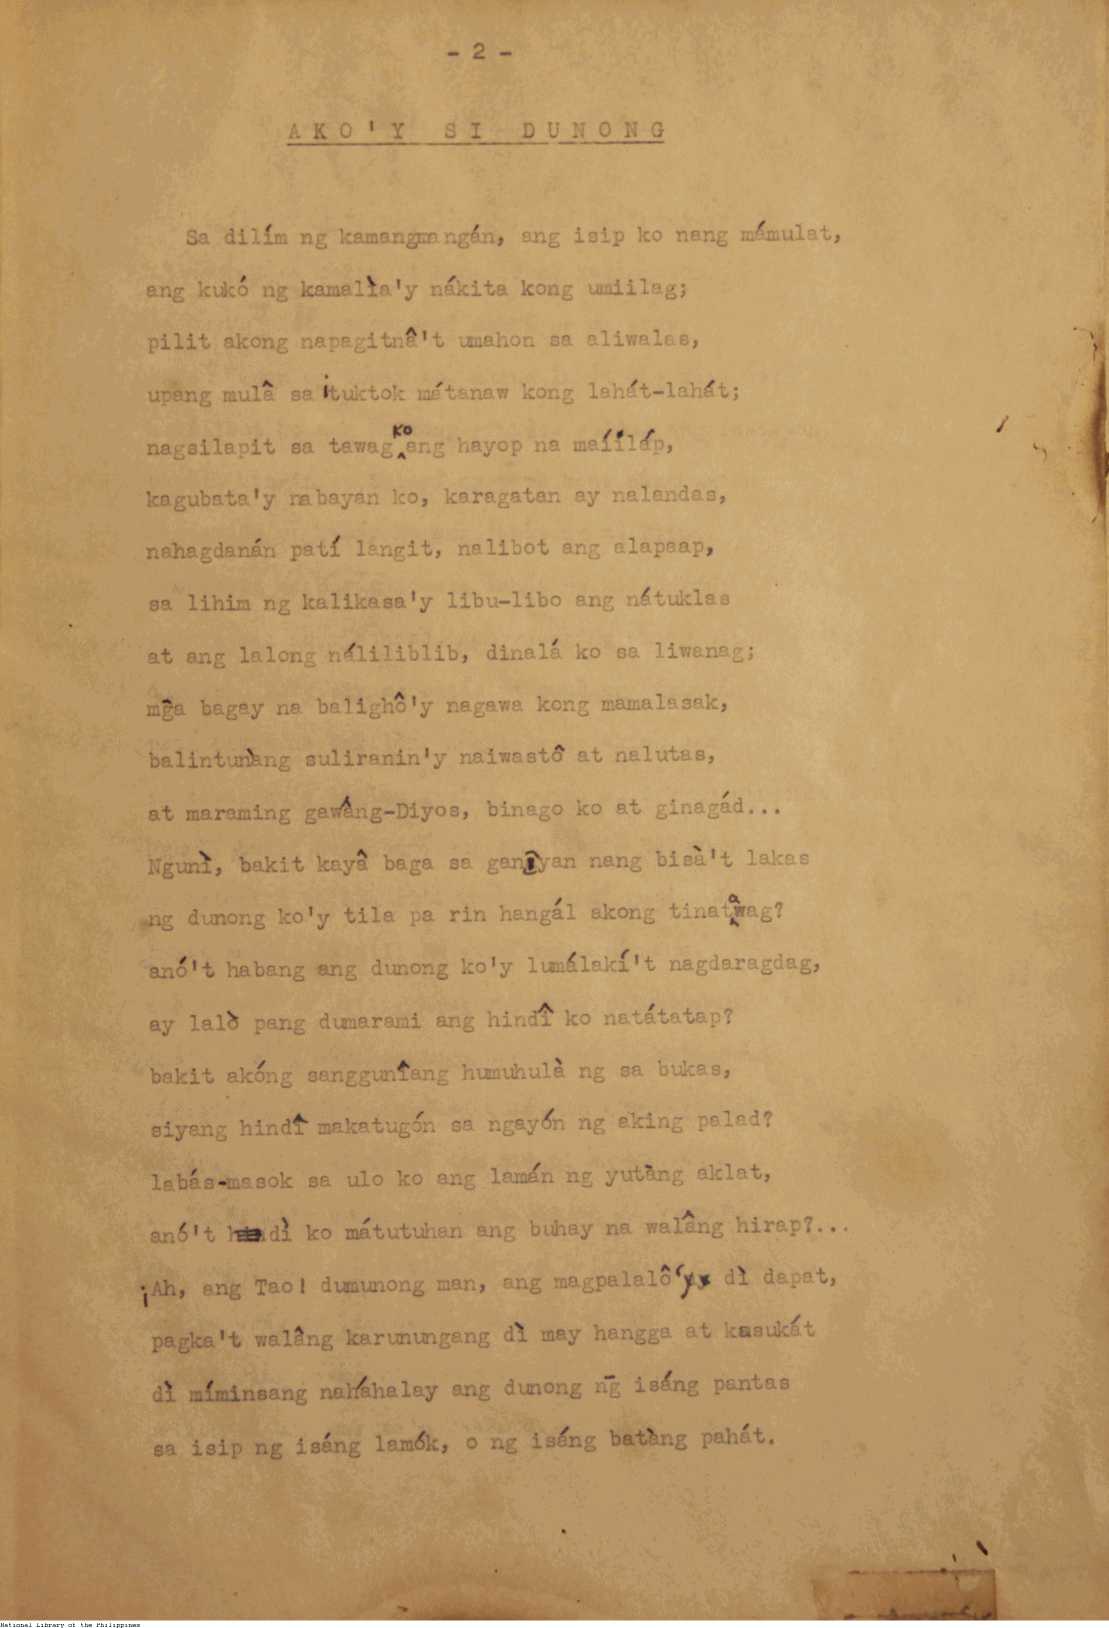 - 2 -
AKO'Y SI DUNONG
Sa dilím ng kamangmangán, ang isip ko nang mámulat,
ang kukó ng kamalìa'y nákita kong umiilag;
pilit akong napagitnâ't umahon sa aliwalas,
upang mulâ sa ituktok mátanaw kong lahát-lahát;
nagsilapit sa tawag ko ang hayop na maíiláp,
kagubata'y nabayan ko, karagatan ay nalandas,
nahagdanán patí langit, nalibot ang alapaap,
sa lihim ng kalikasa'y libu-libo ang nátuklas
at ang lalong náliliblib, dinalá ko sa liwanag;
mg̃a bagay na balighô'y nagawa kong mamalasak,
balintunàng suliranin'y naiwastô at nalutas,
at maraming gawâng-Diyos, binago ko at ginagád...
Ngunì, bakit kayâ baga sa ganiyan nang bisà't lakas
ng dunong ko'y tila pa rin hangál akong tinatawag?
anó't habang ang dunong ko'y lumálakí't nagdaragdag,
ay lalò pang dumarami ang hindî ko natátatap?
bakit akóng sanggunîang humuhulà ng sa bukas,
siyang hindî makatugón sa ngayón ng aking palad?
labás-masok sa ulo ko ang lamán ng yutàng aklat,
anó't dì ko mátutuhan ang buhay na walâng hirap?...
¡Ah, ang Tao! dumunong man, ang magpalalô'y dì dapat,
pagka't walâng karunungang dì may hangga at kasukát
dì míminsang naháhalay ang dunong n͠g isáng pantas
sa isip ng isáng lamók, o ng isáng batàng pahát.
National Library of the Philippines